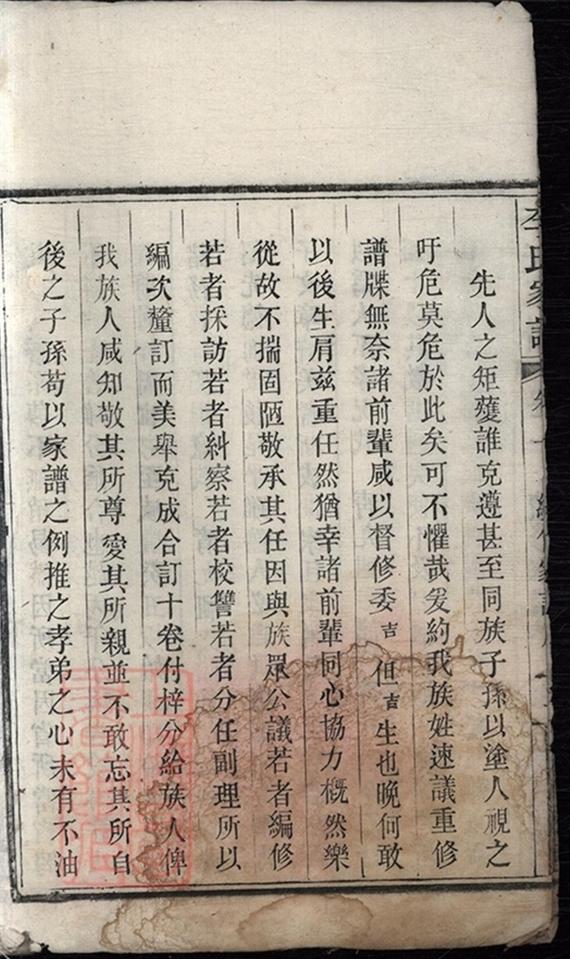 李氏家譜
先人之矩矱誰克遵甚至同族子孫以塗人視之
吁危莫危於此矣可不懼哉爰約我族姓速議重修
譜牒無奈諸前輩咸以督修委吉但吉生也晚何敢
以後生肩茲重任然猶幸諸前輩同心協力概然樂
從故不揣固陋敬承其任因與族眾公議若者編修
若者採訪若者糾察若者校讐若者分任副理所以
編次釐訂而美舉克成合訂十卷付梓分給族人俾
我族人咸知敬其所尊愛其所親並不敢忘其所自
後之子孫苟以家譜之例推之孝弟之心未有不油